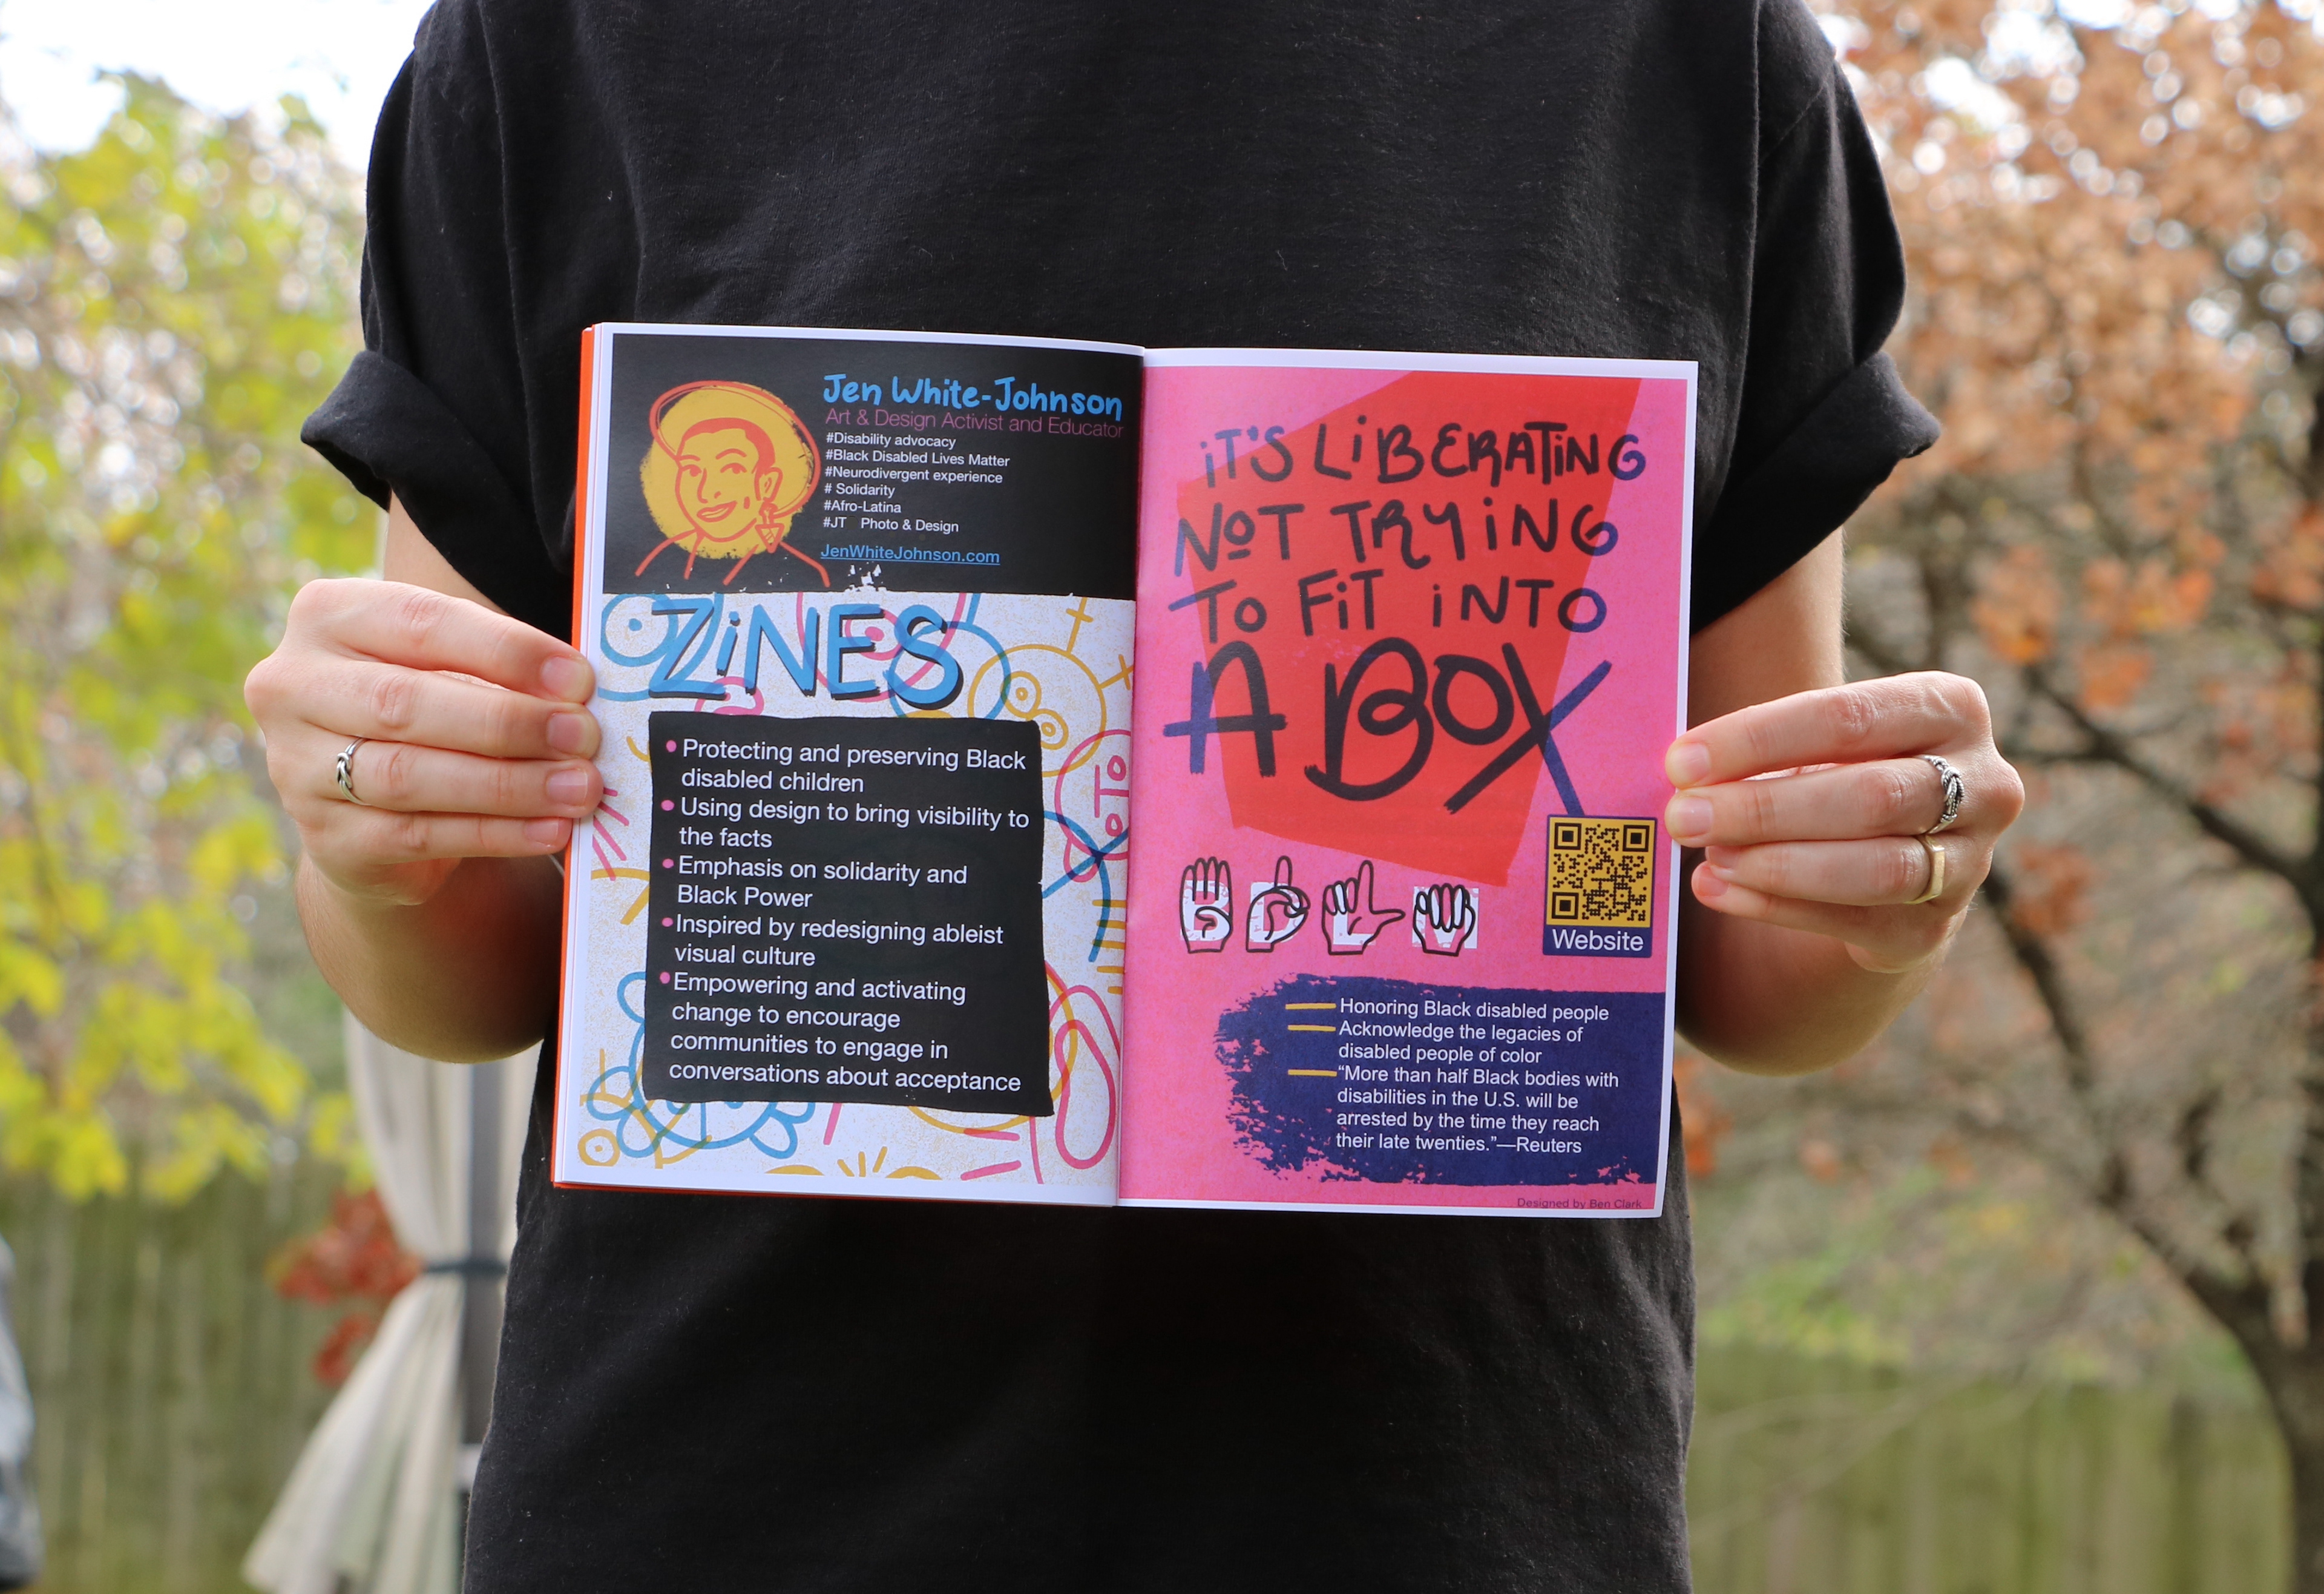 Jen White-Johnson
Art & Design Activist and Educator
#Disability advocacy
#Black Disabled Lives Matter
#Neurodivergent experience
# Solidarity
#Afro-Latina
#JT Photo & Design
JenWhiteJohnson.com
ZiNES
• Protecting and preserving Black
disabled children
• Using design to bring visibility to
the facts
• Emphasis on solidarity and
Black Power
• Inspired by redesigning ableist
visual culture
• Empowering and activating
change to encourage
communities to engage in
conversations about acceptance
iT'S LiBERATiNG
NOT TRYiNG
TO FiT iNTO
A BOX
B D L M
Website
Honoring Black disabled people
Acknowledge the legacies of
disabled people of color
“More than half Black bodies with
disabilities in the U.S. will be
arrested by the time they reach
their late twenties.”—Reuters
Designed by Ben Clark